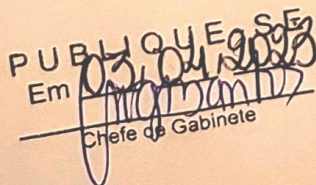 PUBLIQUE-SE
Em 03,04,2023
Chefe de Gabinete